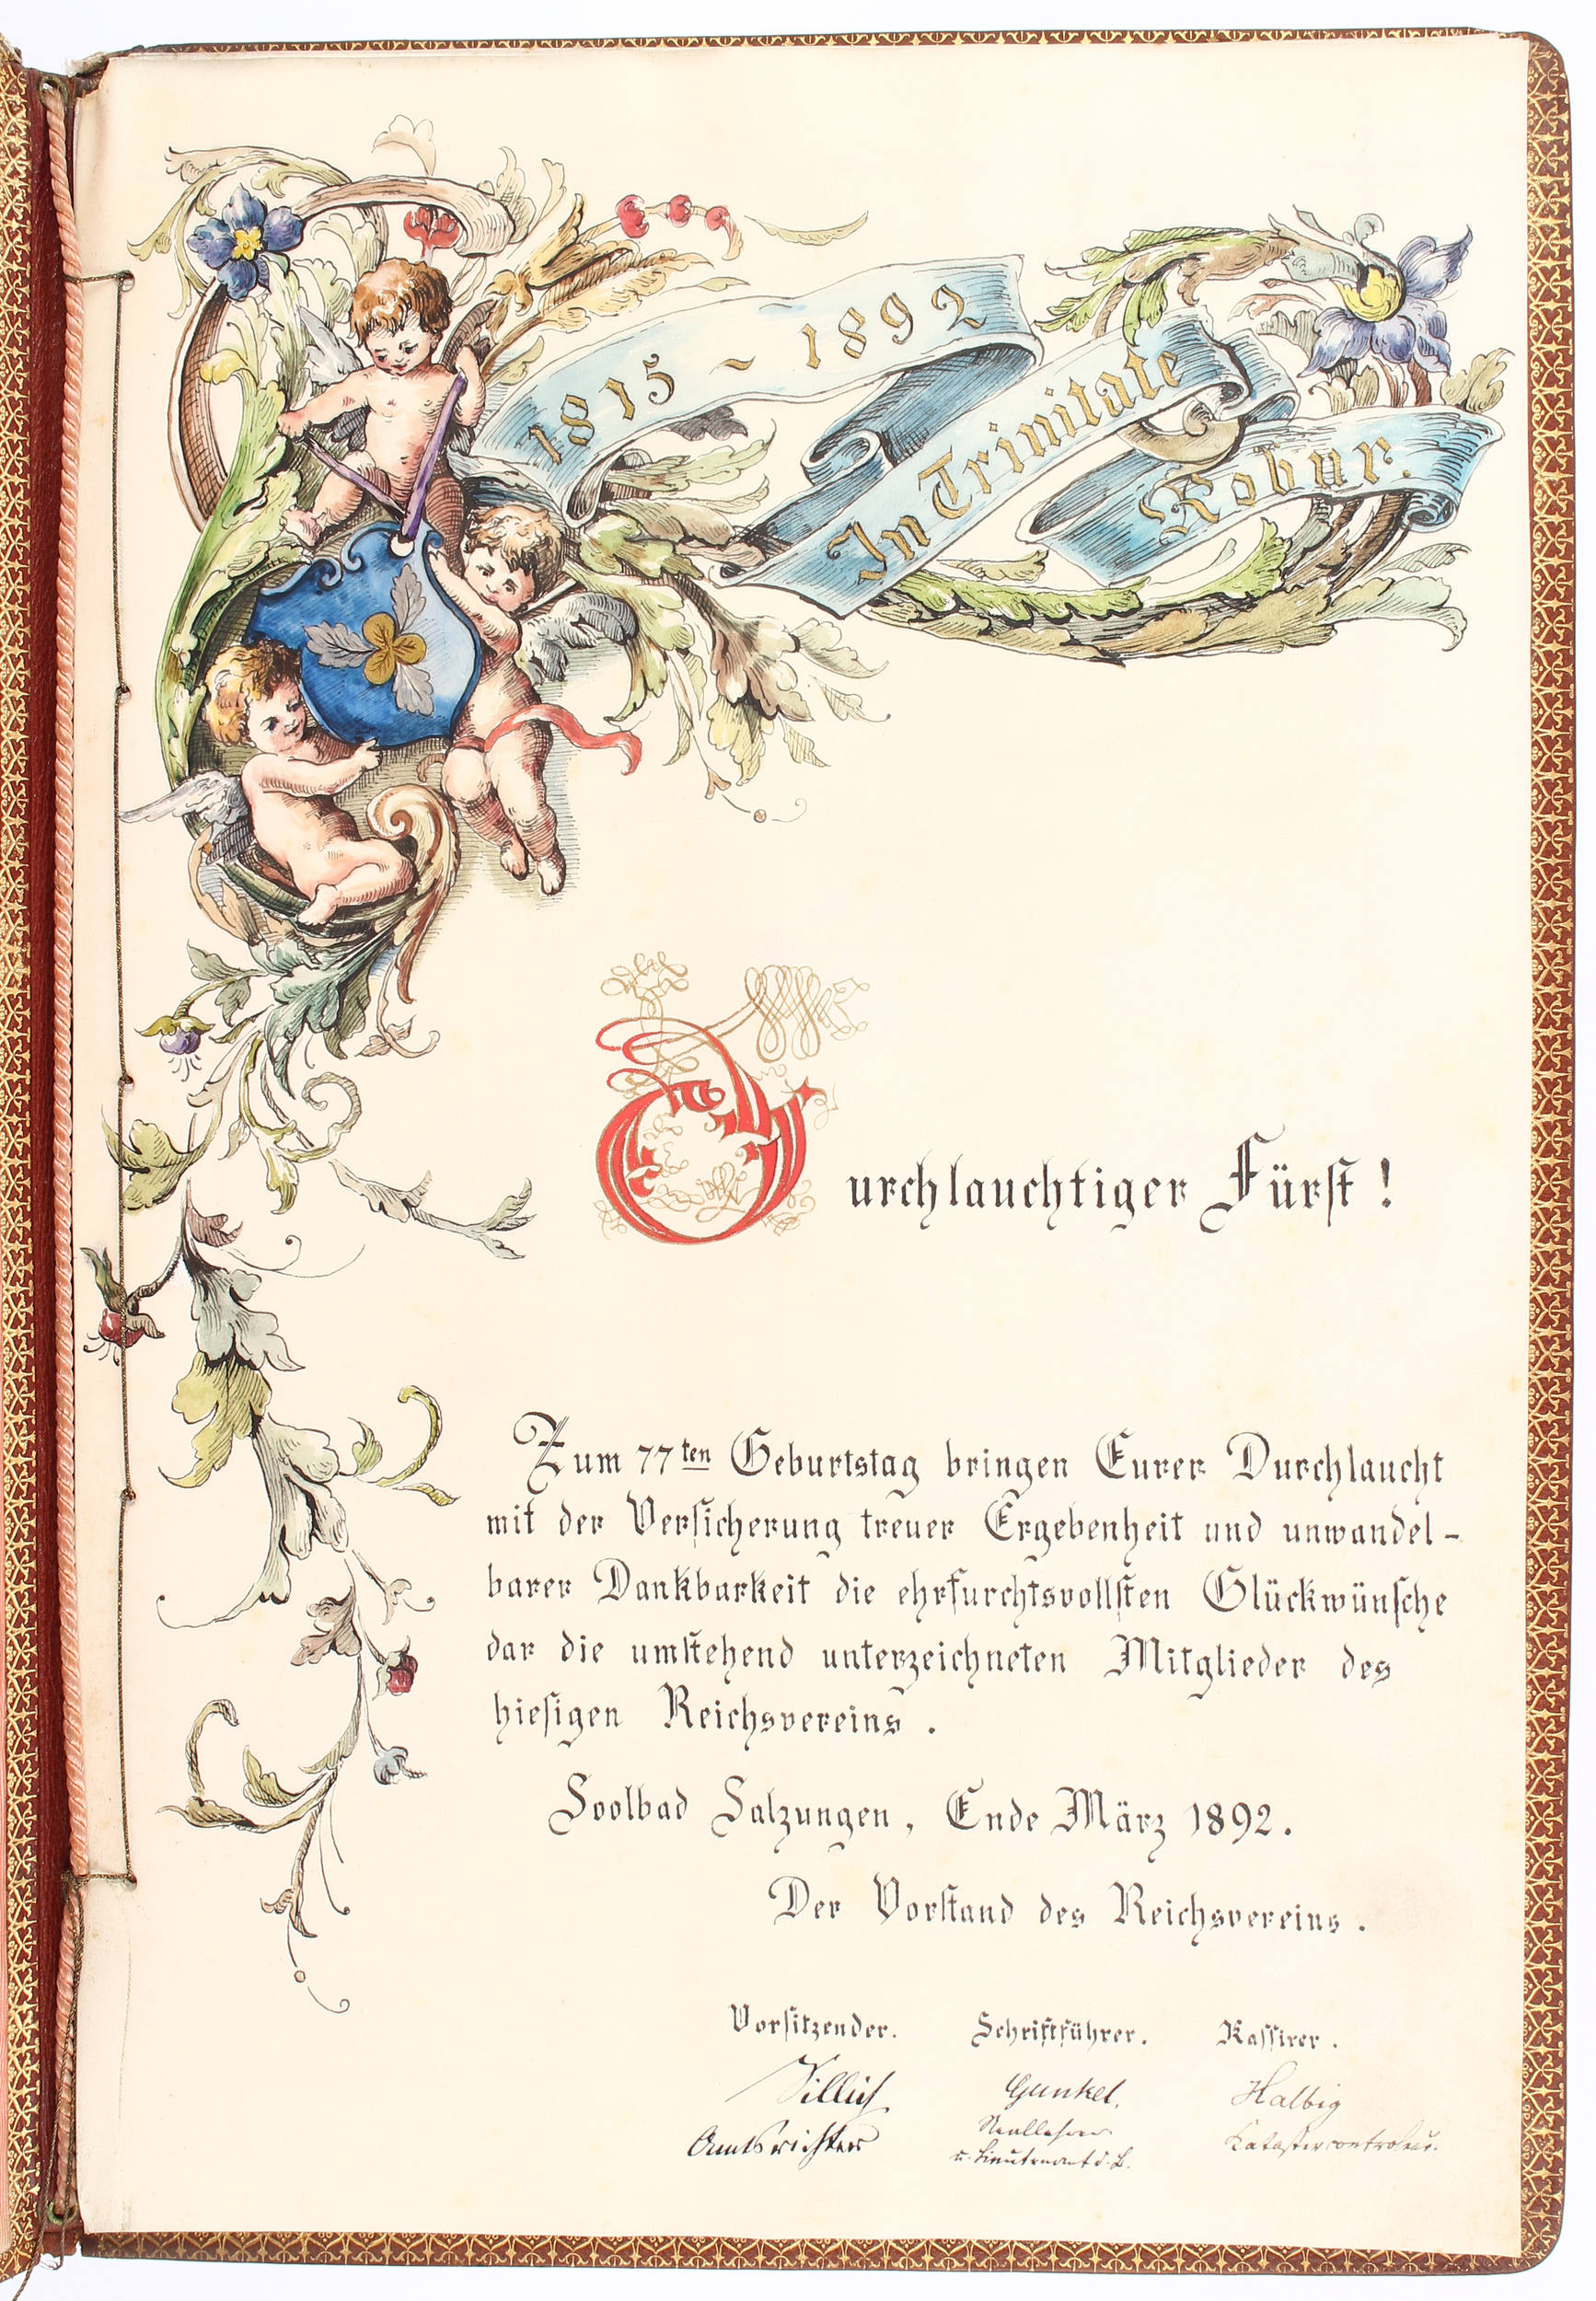 1815 – 1892
In Trinitate
Robur.
Durchlauchtiger Fürst!
Zum 77ten Geburtstag bringen Eurer Durchlaucht
mit der Versicherung treuer Ergebenheit und unwandel-
barer Dankbarkeit die ehrfurchtsvollsten Glückwünsche
dar die umstehend unterzeichneten Mitglieder des
hiesigen Reichsvereins.
Soolbad Salzungen, Ende März 1892.
Der Vorstand des Reichsvereins.
Vorsitzender. Schriftführer. Kassirer.
Gunkel. Halbig
Amtsrichter Reallehrer Katastercontroleur.
u. Lieutenant d. L.